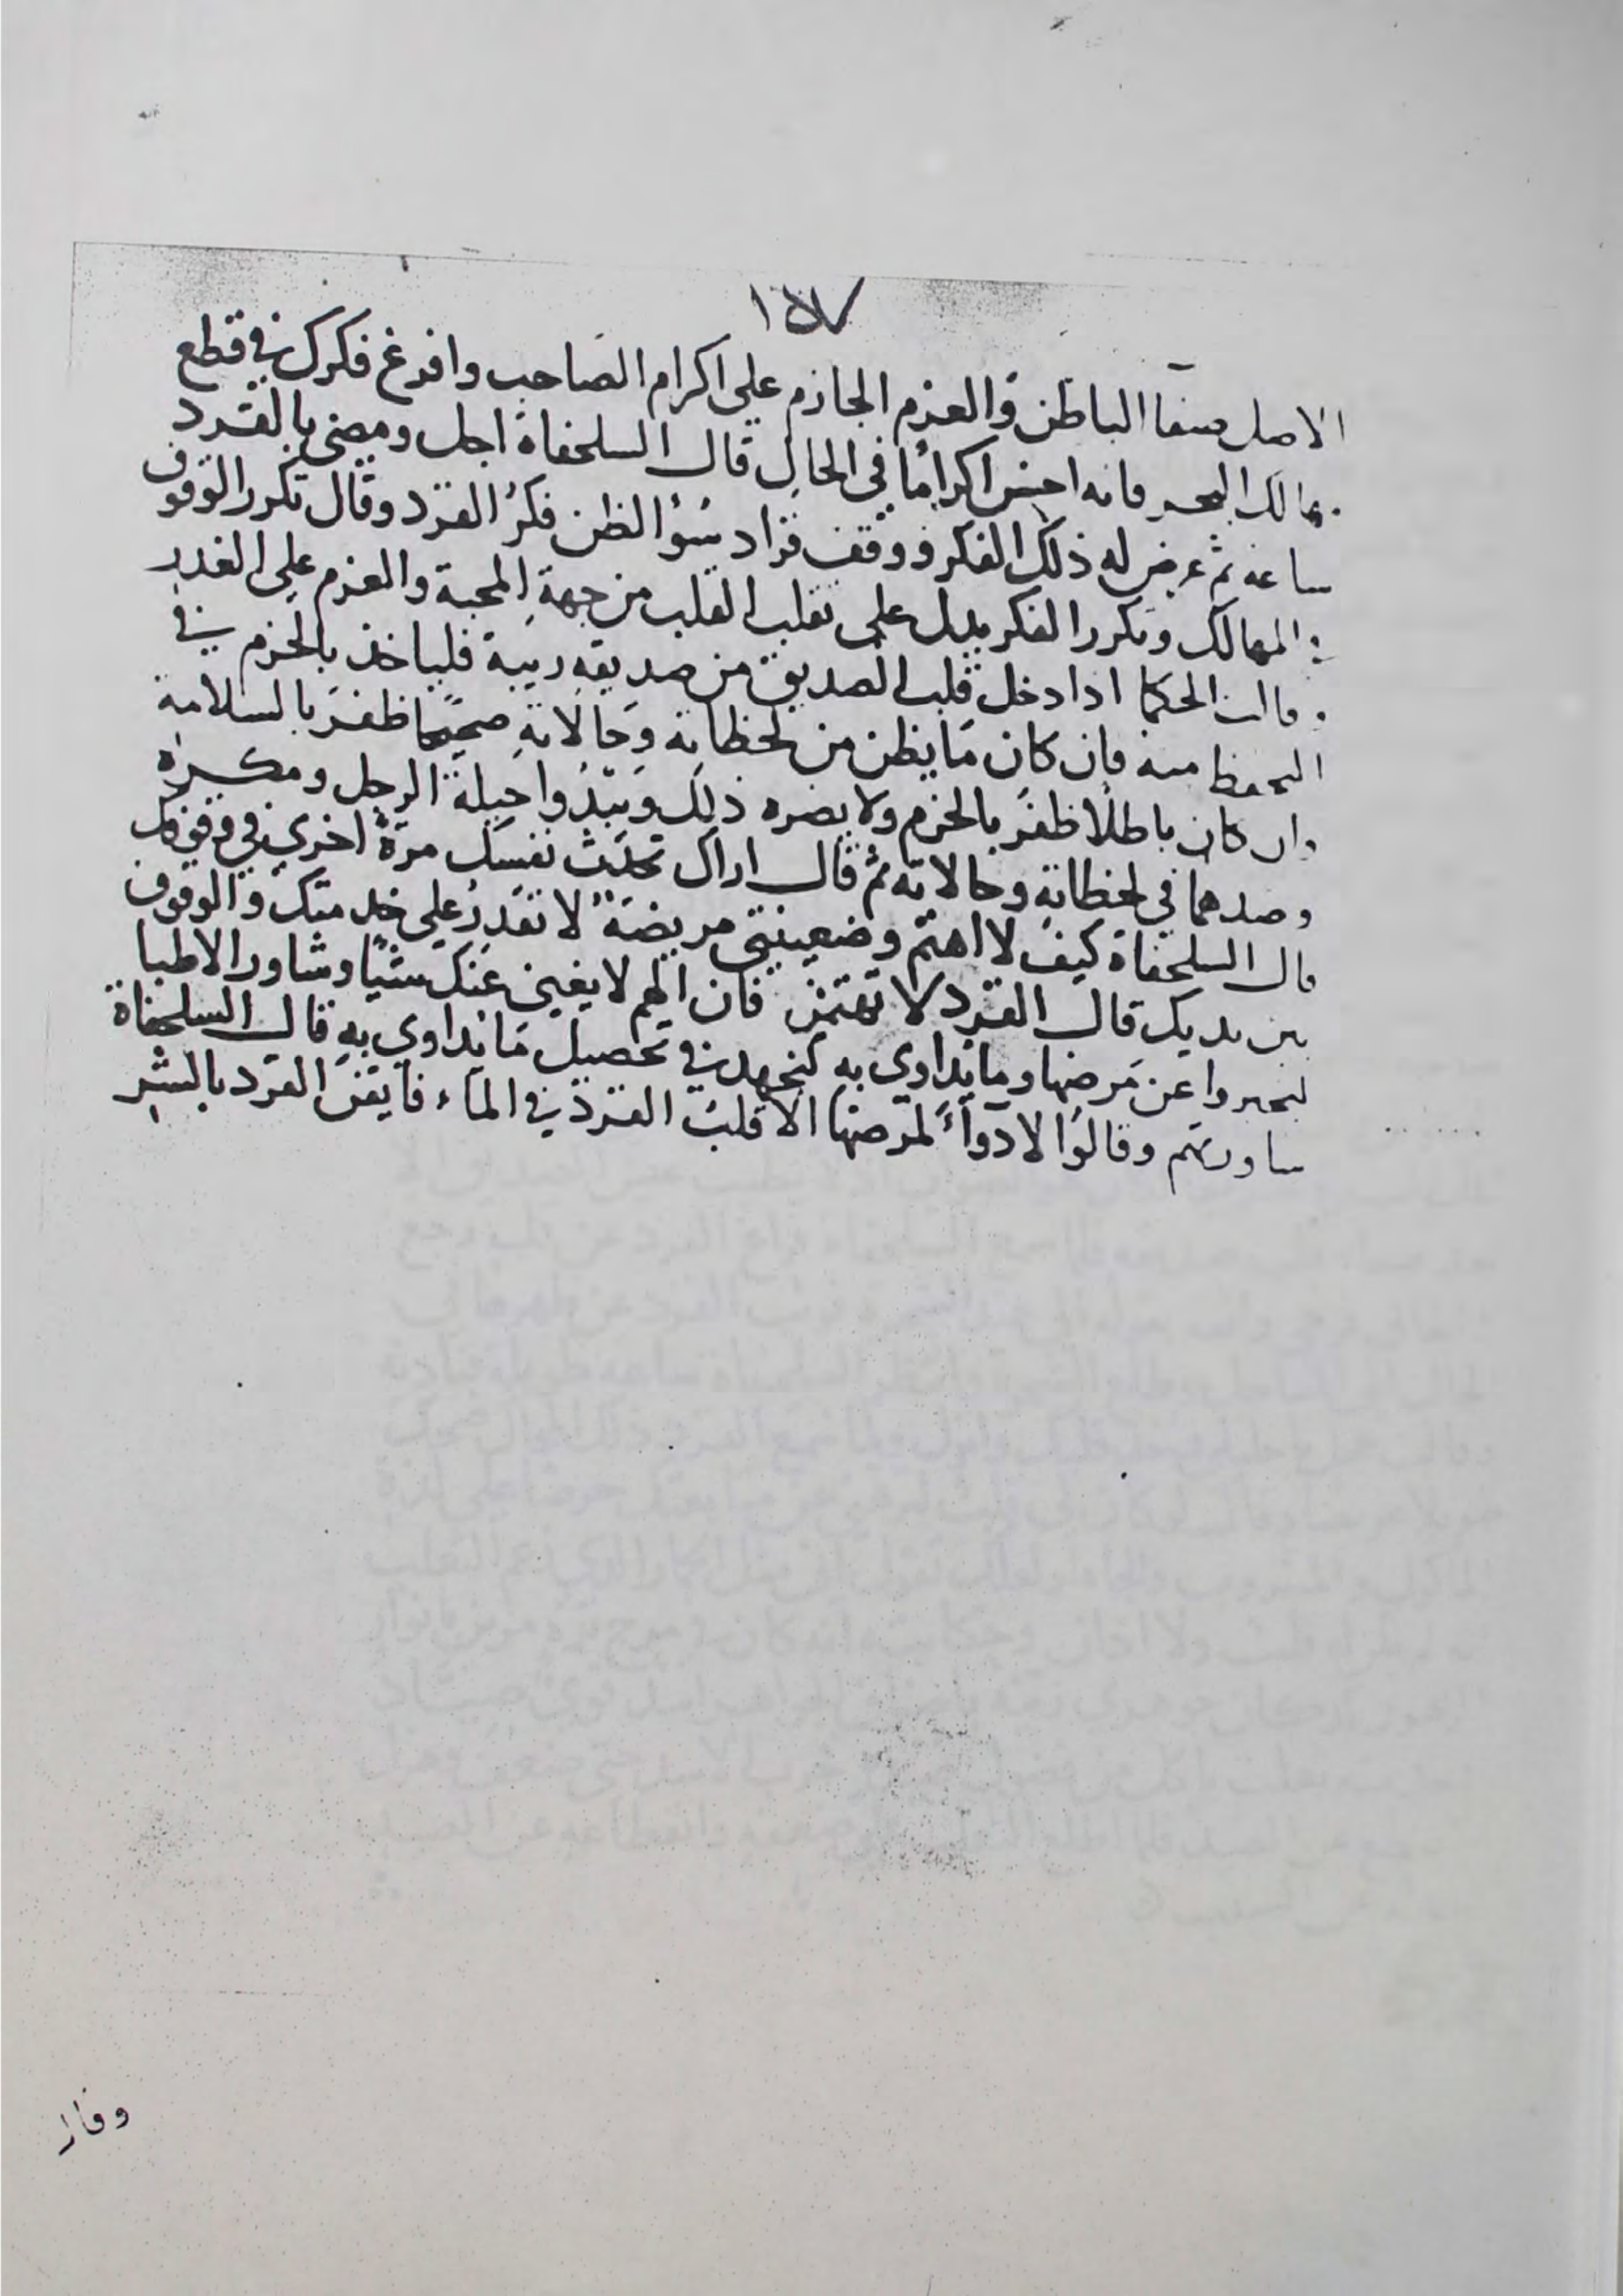 ١٥٧
الاصل صفا الباطن والعزم الجازم على اكرام الصاحب وافرغ فكرك في قطع
مهالك البحر فانه احسن اكرامًا في الحال قال السلحفاة اجل ومضى بالقرد
ساعه ثم عرض له ذلك الفكر فوقف فزاد سُوُالظن فكرُ القرد وقال تكرر الوقوف
المهالك وتكرر الفكر يدل على تقلب القلب من جهةِ المحبة والعزم على الغدر
وقالت الحكما اذا دخل قلب الصديق من صديقهِ ريبة فلياخذ بالحزم في
التحفظ منه فان كان مَا يظن من لحظاته وَحالاتهِ صحيحًا ظفرَ بالسلامة
وان كان باطلًا ظفرَ بالحزم ولا يضره ذلك وَيَبْدُوا حيلة الرجل ومكره
وصدهما في لحظاتهِ وحالاته ثم قال اراك تحدّث نفسك مرّةً اخري في وقوفك
قال السلحفاة كيفَ لا اهتم وضعينتي مريضَة لا تقدِرُ على خدمتك والوقوف
بين يديك قال القرد لا تهتمن فان الهم لا يغيني عَنك شيًا وشاور الاطبا
ليخبروا عن مَرضها وما يداوي به لنجهد في تحصيل مَا يداوي بهِ قال السلحفاة
شاورتهم وقالوُا لا دَواءً لمرضها الا قلبُ القرد في الماء فايقنَ القرد بالشر
وقال